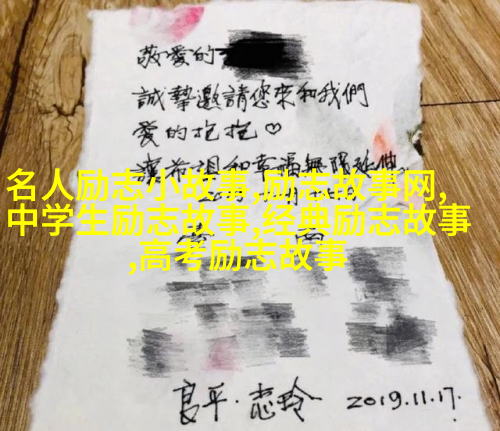 敬愛的
誠摯邀請您來和我們
愛的抱抱♡
讓希望和幸福無限延伸
名人励志小故事,励志故事网,
中学生励志故事,经典励志故事
,高考励志故事
良平·志玲 2019.11.17.